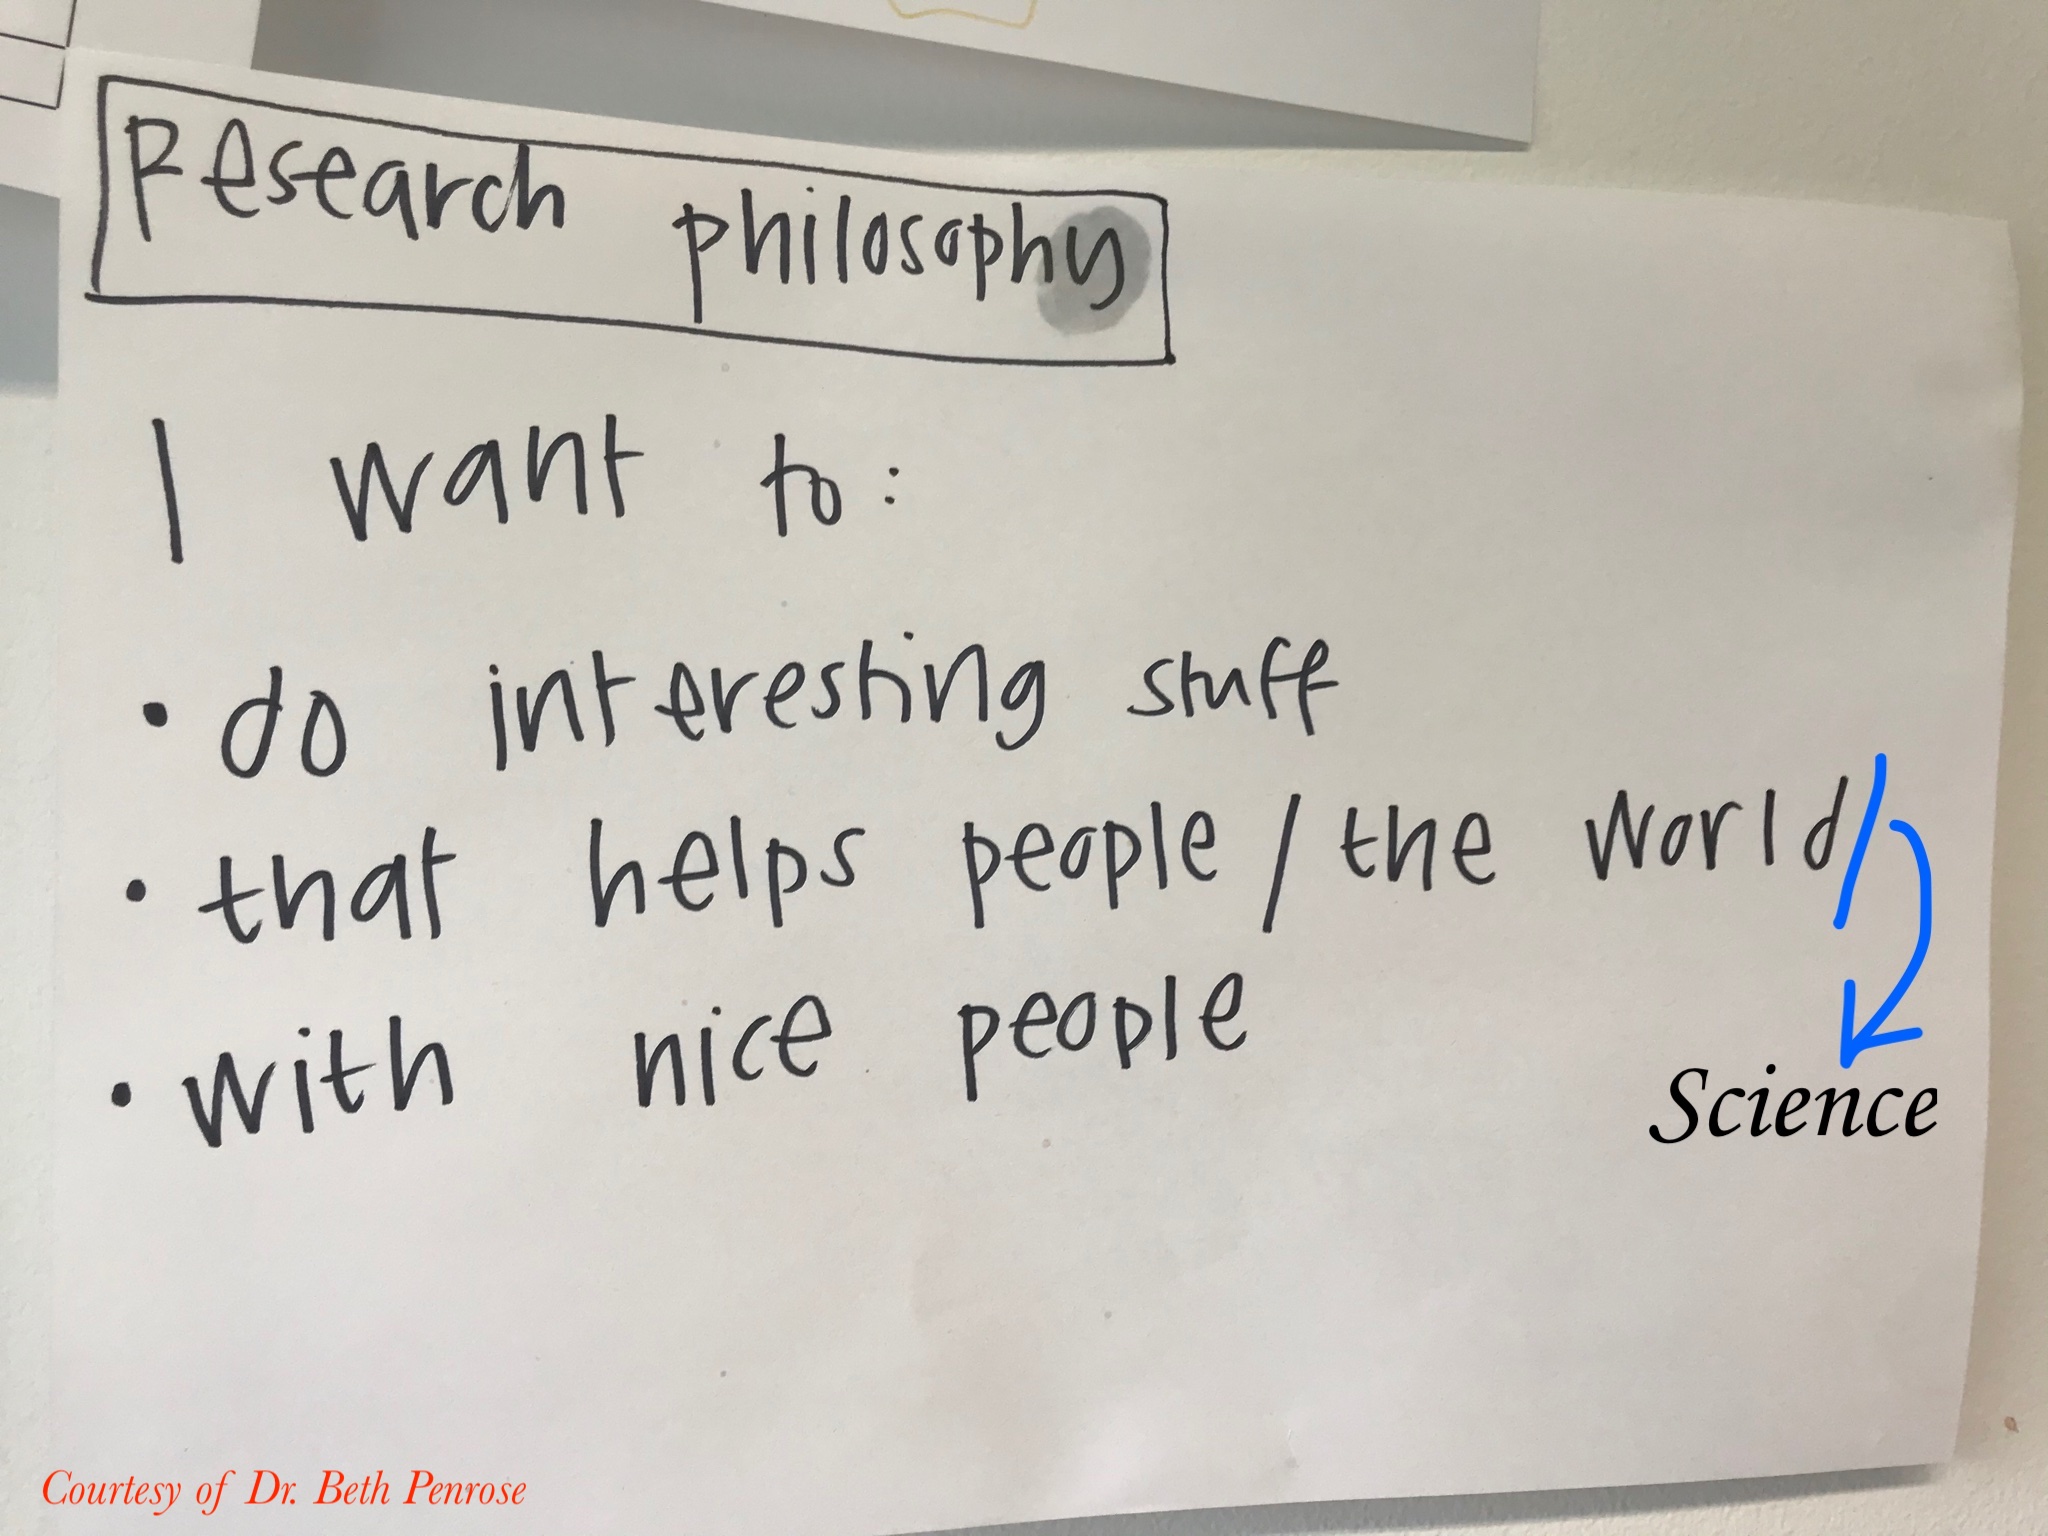 Research philosophy
I want to:
• do interesting stuff
• that helps people / the world /
Science
• with nice people
Courtesy of Dr. Beth Penrose